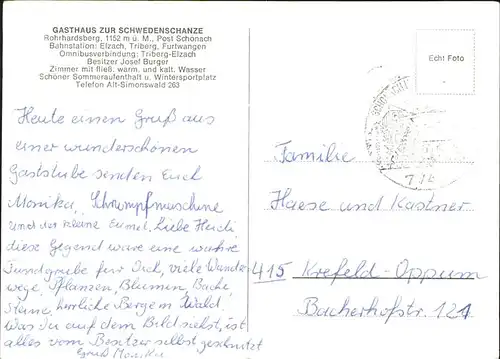 GASTHAUS ZUR SCHWEDENSCHANZE
Rohrhardsberg, 1152 m ü. M., Post Schonach
Bahnstation: Elzach, Triberg, Furtwangen
Omnibusverbindung: Triberg-Elzach
Besitzer Josef Burger
Zimmer mit fließ. warm. und kalt. Wasser
Schöner Sommeraufenthalt u. Wintersportplatz
Telefon Alt-Simonswald 263
Heute einen Gruß aus
einer wunderschönen
Gaststube senden Euch
Monika, Schrumpfmaschine
und der kleine Eumel. Liebe Heidi,
diese Gegend wäre eine wahre
Fundgrube für Dich, viele Wander
wege, Pflanzen, Blumen, Bäche,
Steine, herrliche Berge m. Wald.
Was Du auf dem Bild siehst, ist
alles vom Besitzer selbst geschnitzt
Gruß Monika
Echt Foto
Familie
Haese und Kastner
415 Krefeld-Oppum
Backerhofstr. 121